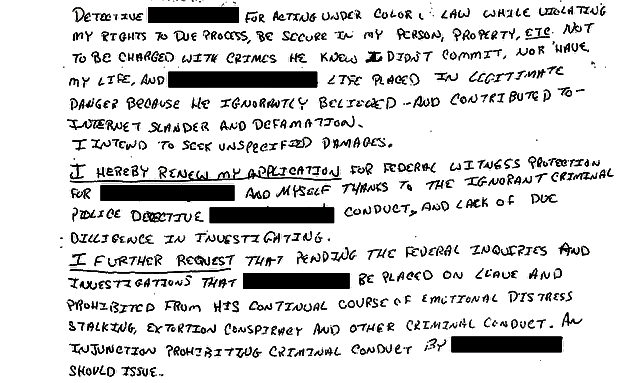 DETECTIVE FOR ACTING UNDER COLOR LAW WHILE VIOLATING
MY RIGHTS TO DUE PROCESS, BE SECURE IN MY PERSON, PROPERTY, ETC. NOT
TO BE CHARGED WITH CRIMES HE KNEW I DIDNT COMMIT, NOR HAVE
MY LIFE, AND LIFE PLACED IN LEGITIMATE
DANGER BECAUSE HE IGNORANTLY BELIEVED -AND CONTRIBUTED TO-
INTERNET SLANDER AND DEFAMATION.
I INTEND TO SEEK UNSPECIFIED DAMAGES.
I HEREBY RENEW MY APPLICATION FOR FEDERAL WITNESS PROTECTION
FOR AND MYSELF THANKS TO THE IGNORANT CRIMINAL
POLICE DETECTIVE CONDUCT, AND LACK OF DUE
DILLIGENCE IN INVESTIGATING.
I FURTHER REQUEST THAT PENDING THE FEDERAL INQUIRIES AND
INVESTIGATIONS THAT BE PLACED ON LEAVE AND
PROHIBITED FROM HIS CONTINUAL COURSE OF EMOTIONAL DISTRESS
STALKING, EXTORTION CONSPIRACY AND OTHER CRIMINAL CONDUCT. AN
INJUNCTION PROHIBITING CRIMINAL CONDUCT BY
SHOULD ISSUE.